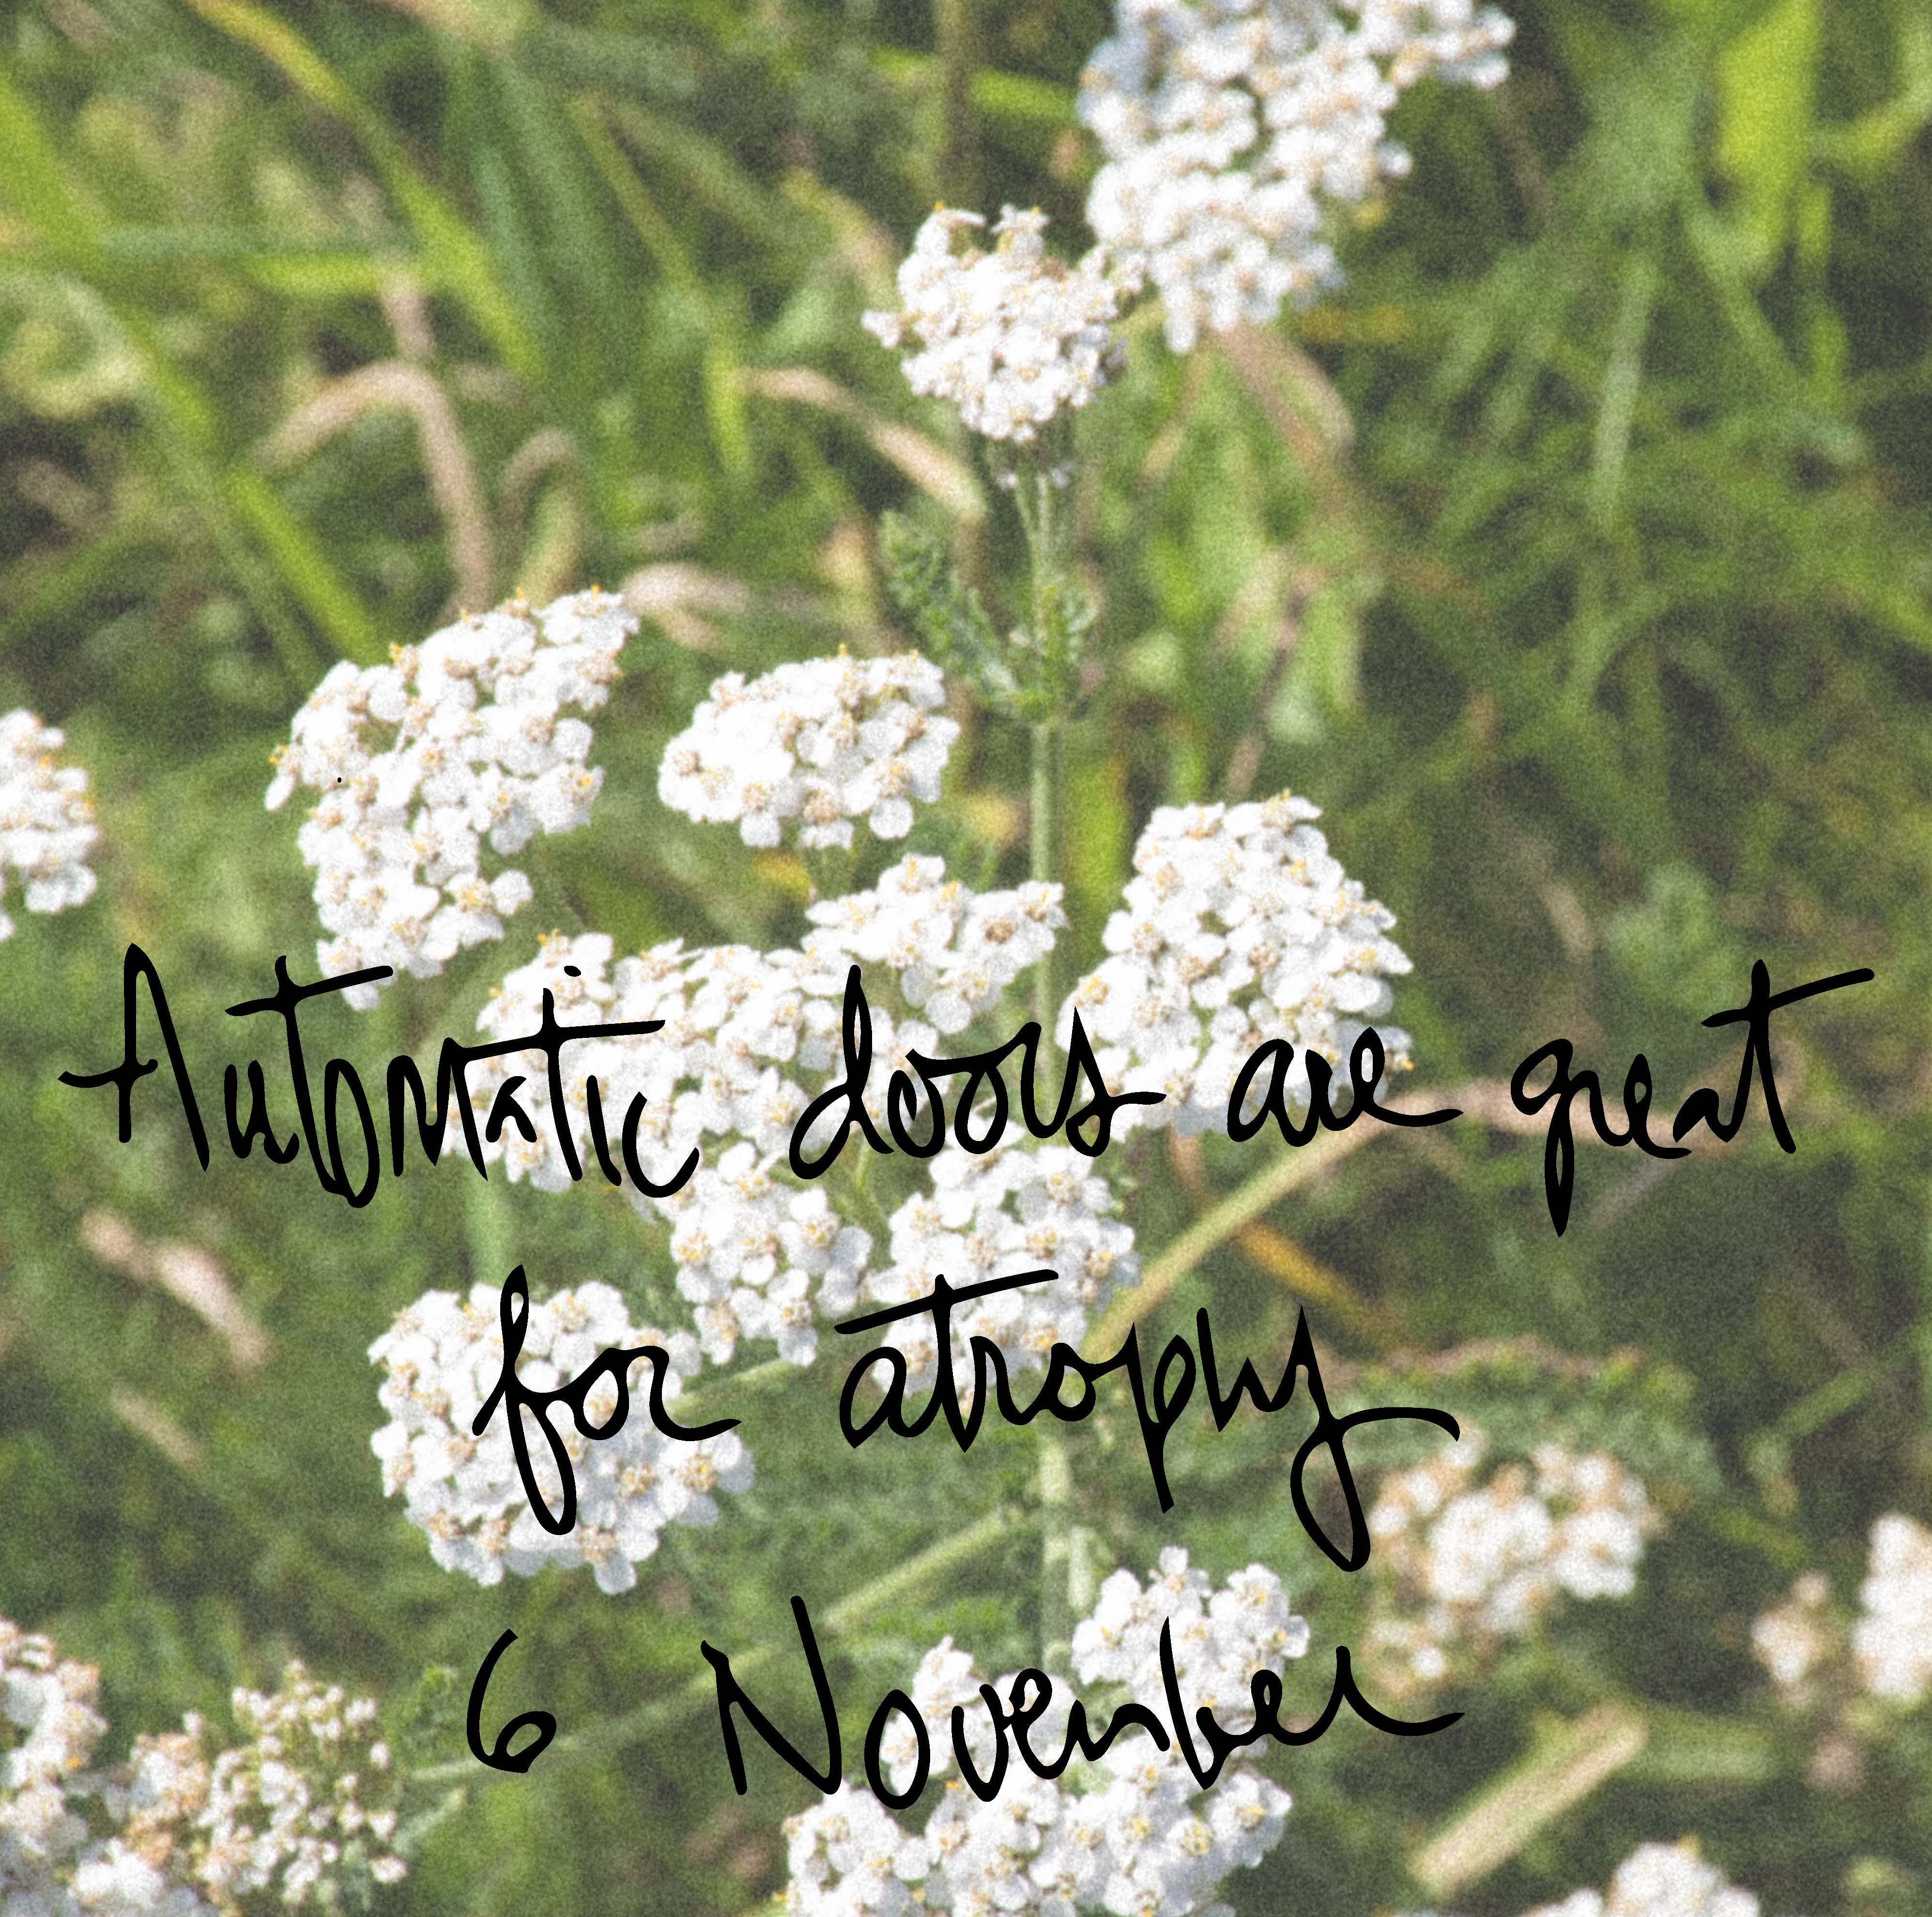 Automatic doors are great
for atrophy
6 November